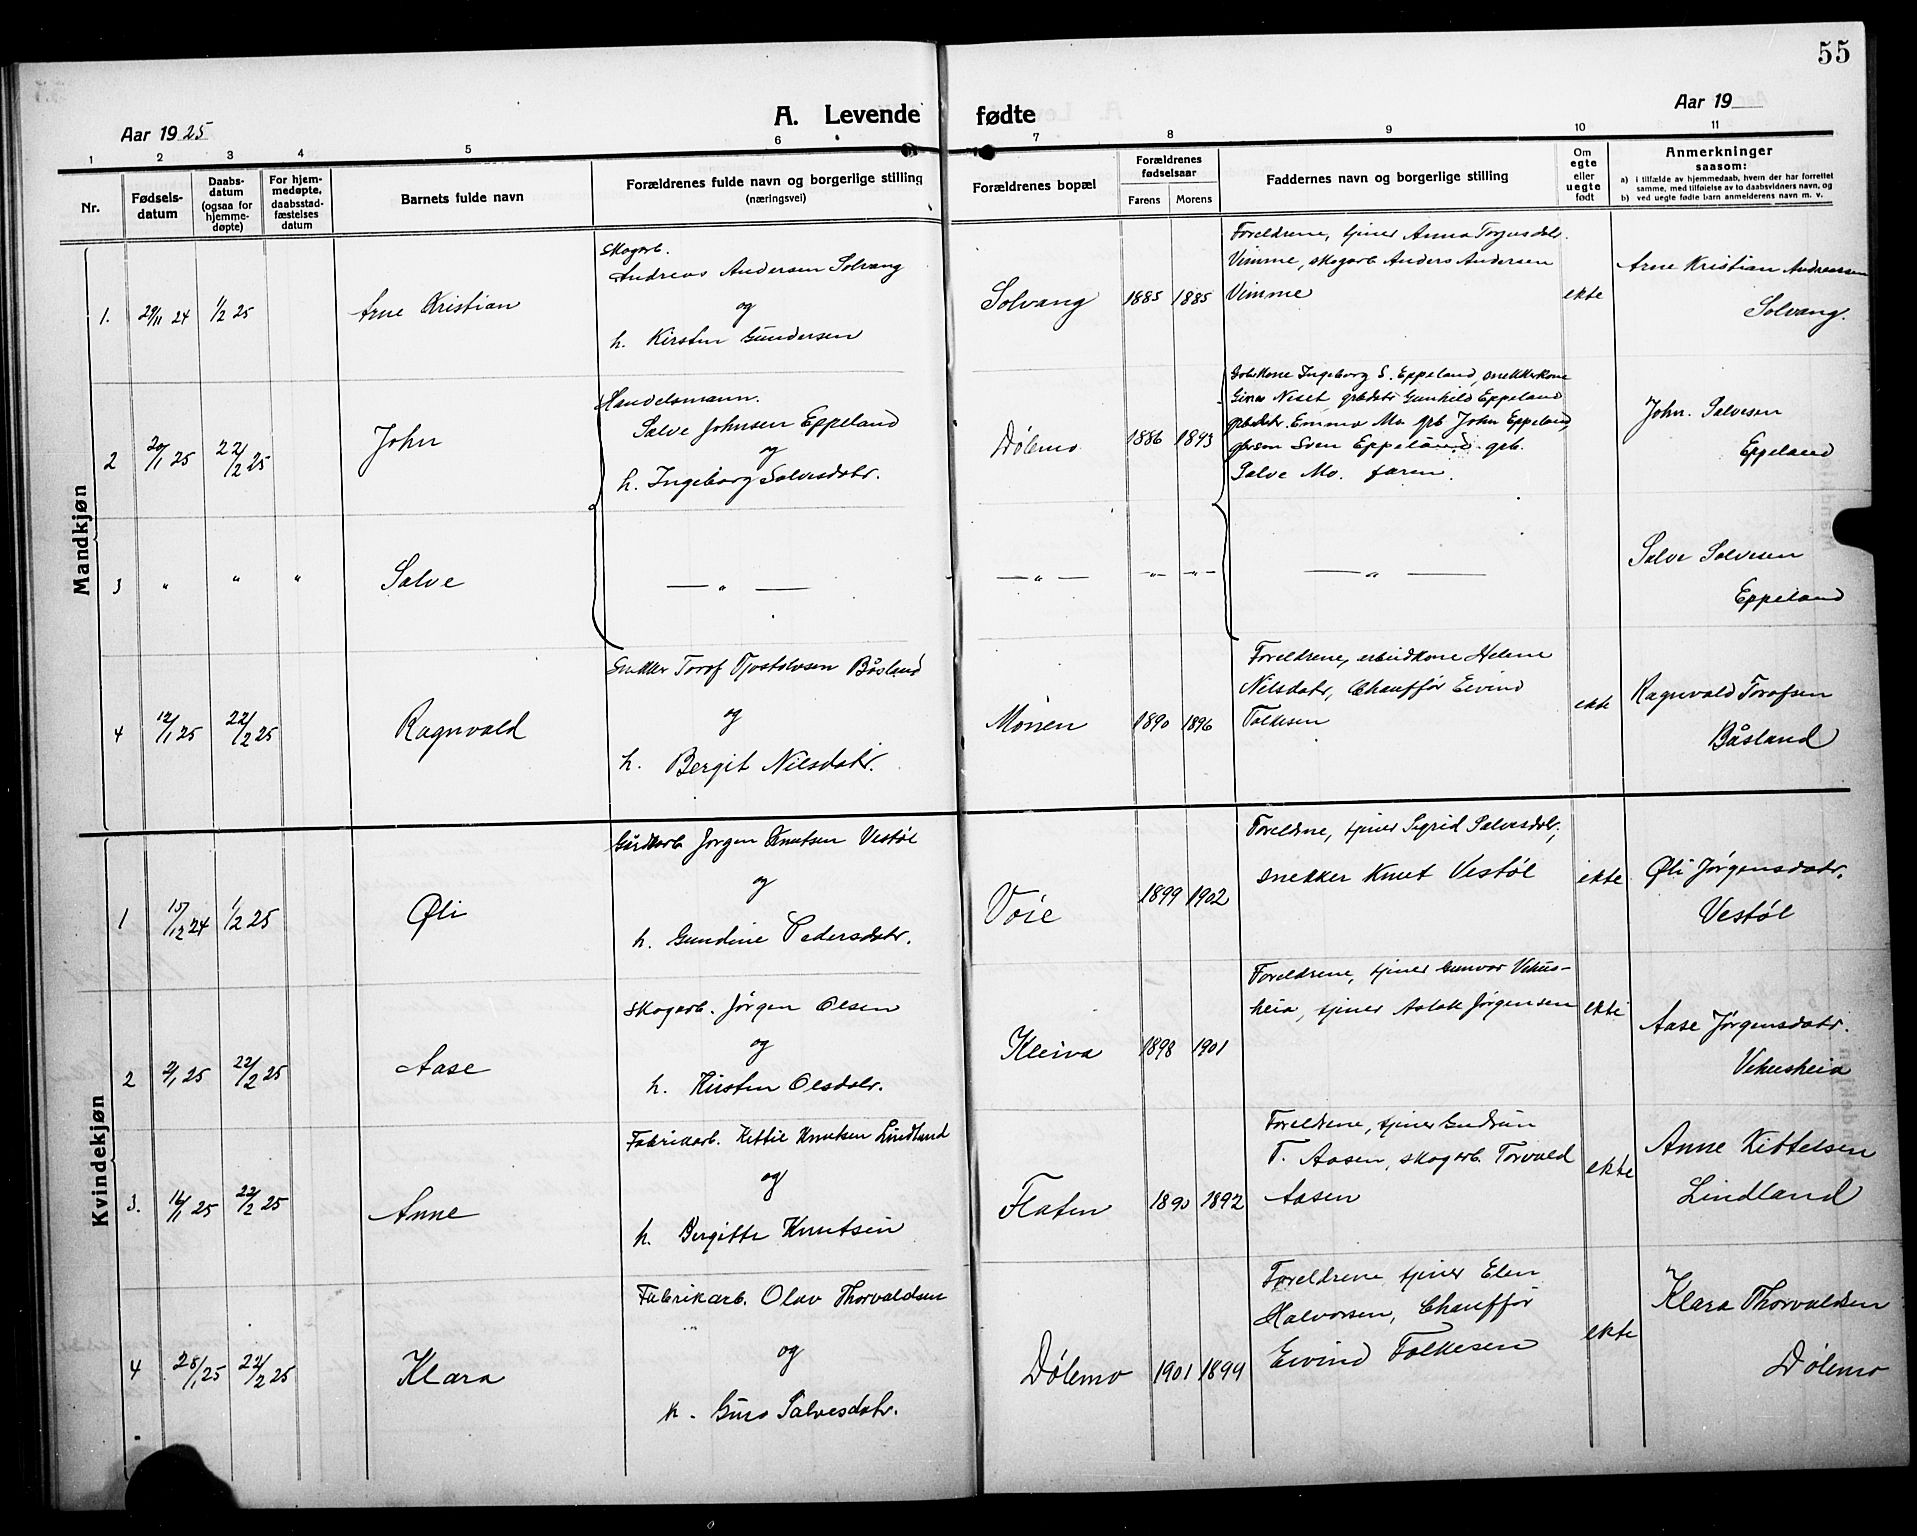 55
A. Levende fødte
Aar 1925
Aar 19
1 2 3 4 5 6 7 8 9 10 11
Nr.
Fødsels-
datum
Daabs-
datum
(ogsaa for
hjemme-
døpte)
For hjem-
medøpte,
daabsstad-
fæstelses
datum
Barnets fulde navn
Forældrenes fulde navn og borgerlige stilling
(næringsvei)
Forældrenes bopæl
Forældrenes
fødselsaar
Farens Morens
Faddernes navn og borgerlige stilling
Om
egte
eller
uegte
født
Anmerkninger
saasom:
a) i tilfælde av hjemmedaab, hvem der har forrettet
samme, med tilføielse av to daabsvidners navn, og
b) ved uegte fødte barn anmelderens navn m. v.
Mandkjøn
1. 29/11 24 1/2 25 Arne Kristian
Skogarb.
Andreas Andersen Solvang
og
h. Kirsten Gundersen
Solvang 1885 1885
Foreldrene, tjener Anna
Vimme, skogarb Anders Andersen
Vimme
ekte
Arne Kristian Andreassen
Solvang.
2 20/1 25 22/2 25 John
Handelsmann.
Salve Johnsen Eppeland
og
h. Ingeborg Salvesdatr.
Dølemo 1886 1893
Ingeborg S. Eppeland, snekkerkone
Niset Gunhild Eppeland
Emma Mo grb John Eppeland,
Sven Eppeland. grb.
Salve Mo. faren.
John. Salvesen
Eppeland
3 " " " Salve
— " —
— " — — " — — " —
— " —
Salve Salvesen
Eppeland
4 12/1 25 22/2 25 Ragnvald
Snekker Torof Tjostolvsen Båsland
og
h. Bergit Nilsdatr.
Monen 1890 1896
Foreldrene, arbeidkone Helene
Nilsdatr, Chauffør Eivind
Folkesen
ekte
Ragnvald Torofsen
Båsland
Kvindekjøn
1 15/12 24 1/2 25 Øli
Gårdarb Jørgen Knutsen Vestøl
og
h. Gundine Pedersdatr.
Voie 1899 1902
Foreldrene, tjener Sigrid Salvesdatr,
snekker Knut Vestøl
ekte
Øli Jørgensdatr.
Vestøl
2 2/1 25 22/2 25 Aase
Skogarb. Jørgen Olsen
og
h. Kirsten Olsdatr.
Kleiva 1898 1901
Foreldrene, tjener Gunvor Vehus-
heia, tjener Aslak Jørgensen
ekte
Aase Jørgensdatr.
Vehusheia
3. 16/1 25 22/2 25 Anne
Fabrikarb. Kittil Knutsen Lindland
og
h. Bergitte Knutsen
Flaten 1890 1892
Foreldrene, tjener Gudrun
T. Aasen, skogarb. Torvald
Aasen
ekte
Anne Kittelsen
Lindland
4 28/1 25 22/2 25 Klara
Fabrikarb. Olav Thorvaldsen
og
h. Guro Salvesdatr.
Dølemo 1901 1899
Foreldrene, tjener Elen
Halvorsen, Chauffør
Eivind Folkesen
ekte
Klara Thorvaldsen
Dølemo